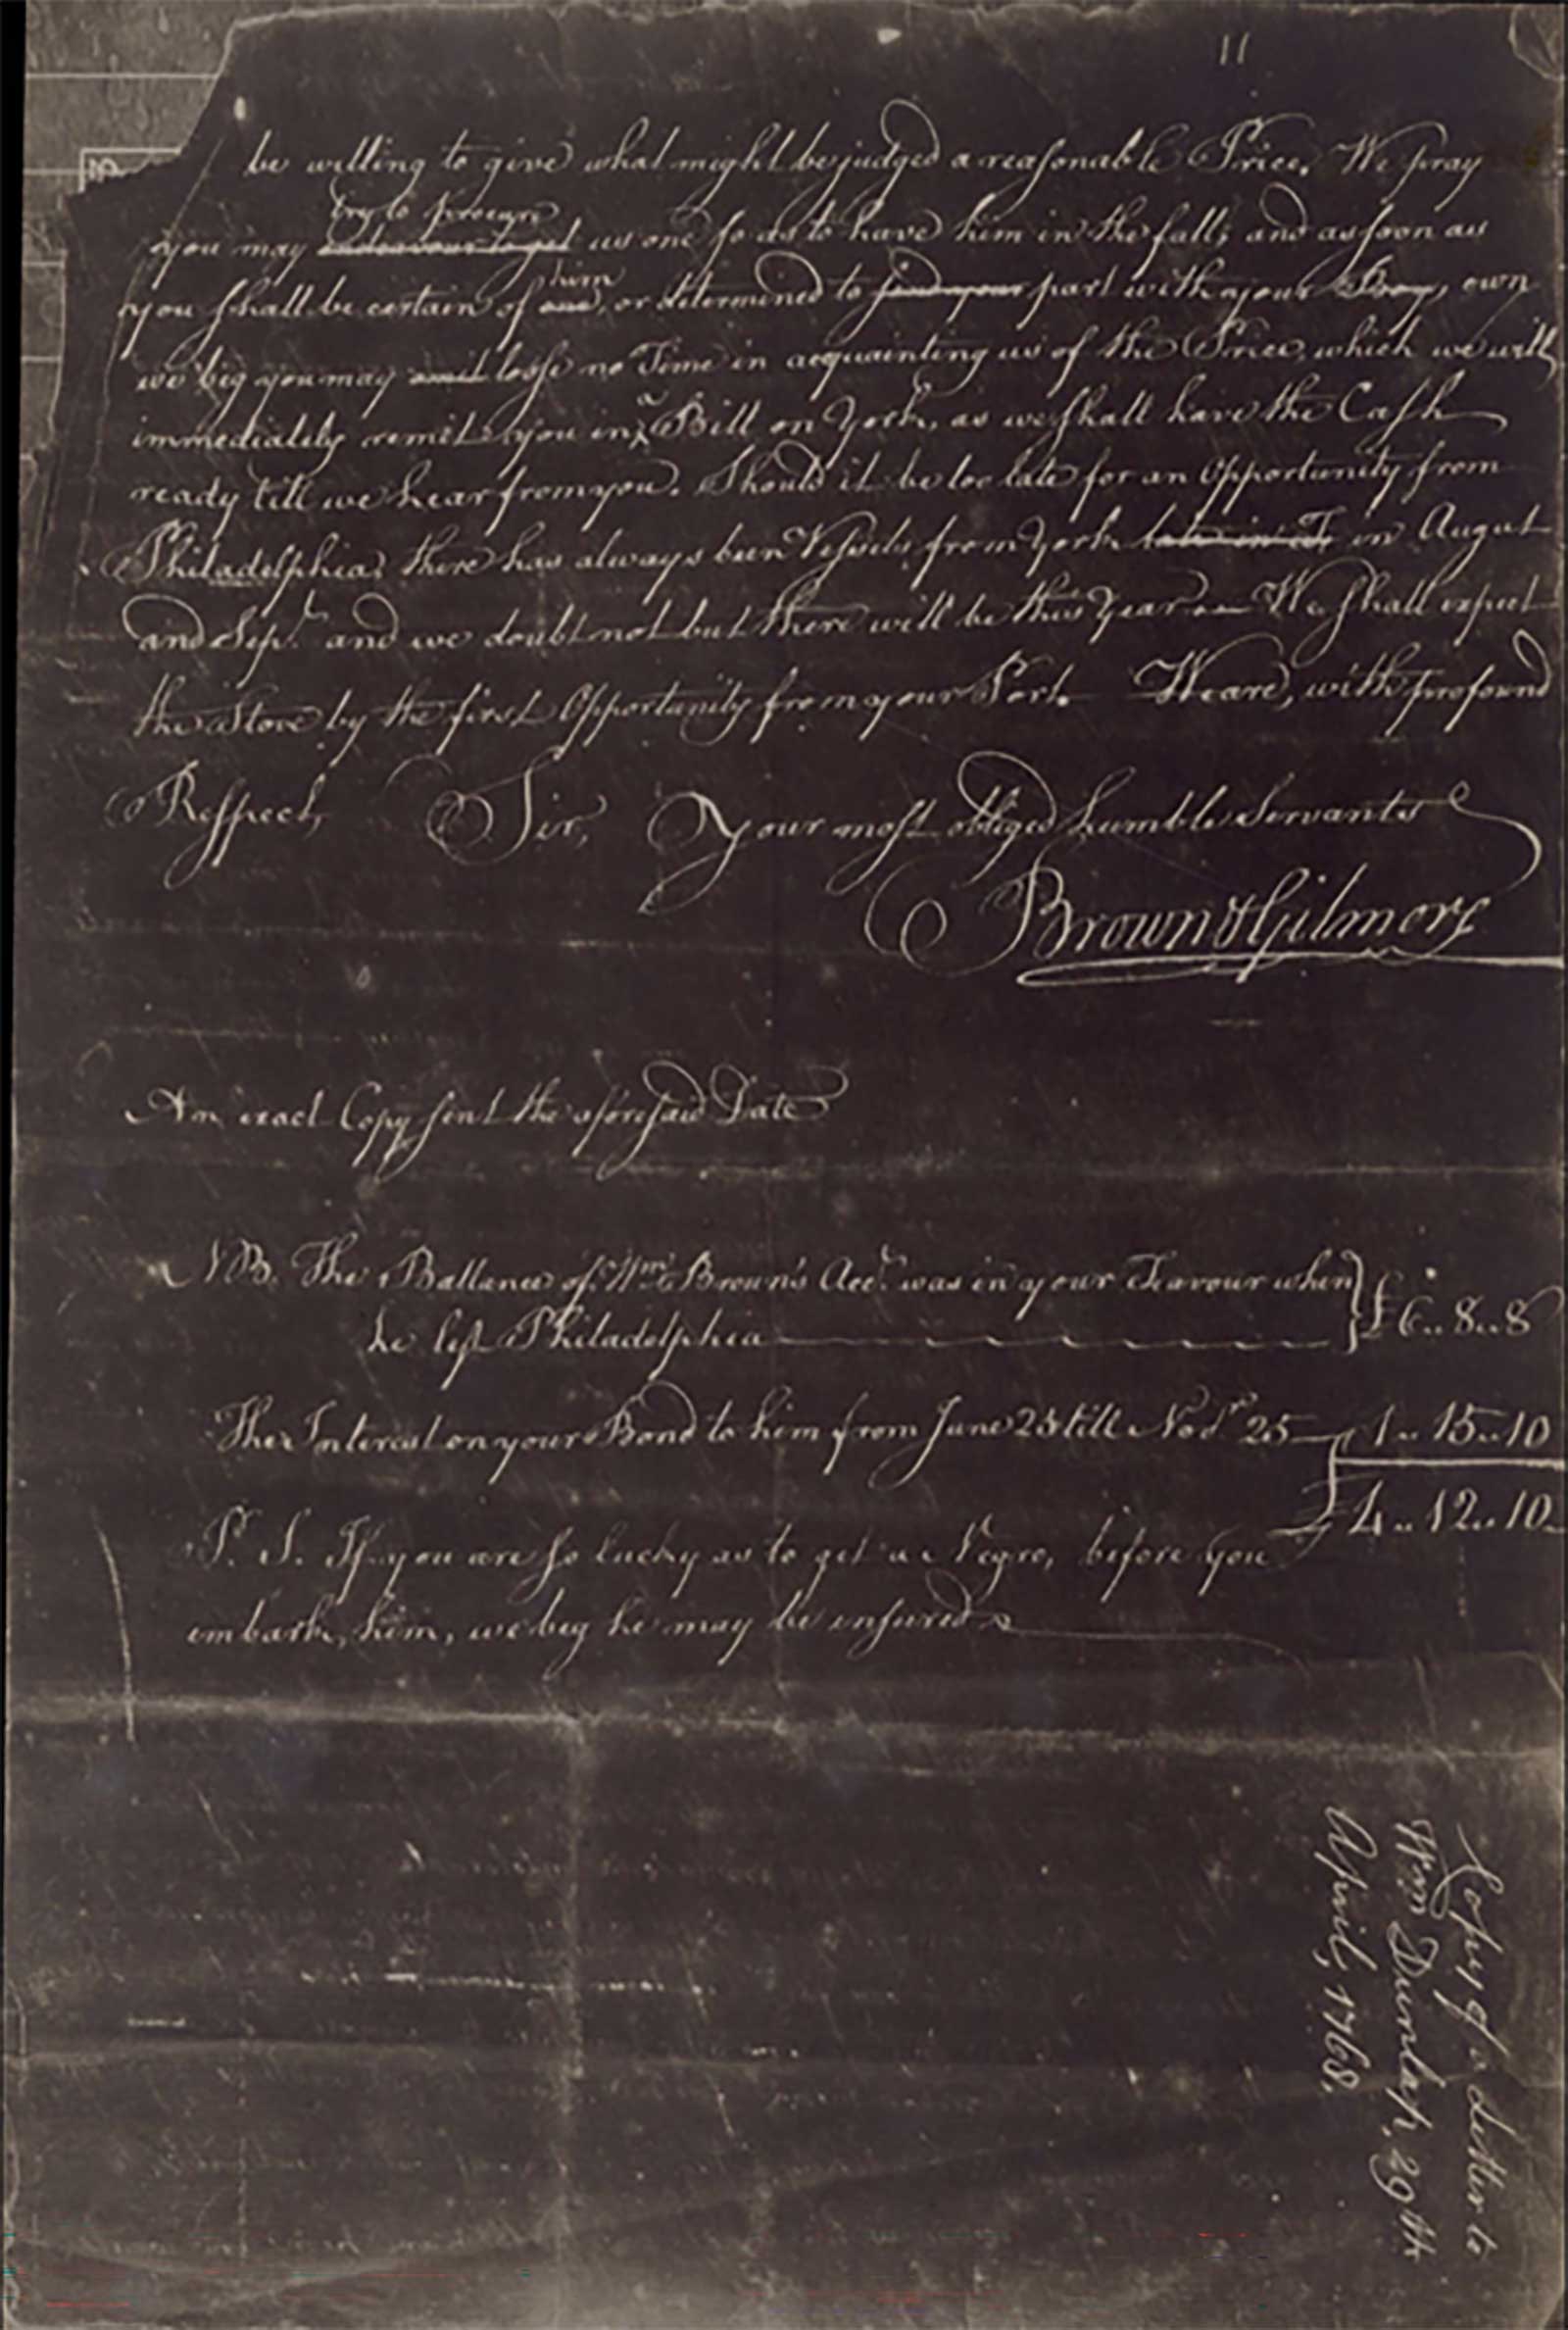 11
be willing to give what might be judged a reasonable Price. We pray
try to procure
you may endeavour to get us one so as to have him in the fall; and as soon as
him
you shall be certain of one, or determined to find your part with your Boy, own
we beg you may omit losse no Time in acquainting us of the Price, which we will
immediately remit you in a Bill on York, as we shall have the Cash
ready till we hear from you. Should it be too late for an Opportunity from
Philadelphia, there has always been Vessels from York late in in Augut
and Sepr. and we doubt not but there will be this Year — We shall expect
the Stove by the first Opportunity from your Port. We are, with profound
Respect, Sir, Your most obliged humble Servants
Brown & Gilmore
An exact Copy sent the aforesaid Date
NB. The Ballance of Wm. Brown's Acct. was in your Favour when
he left Philadelphia } £6 .. 8 .. 8
The Interest on your Bond to him from June 25 till Novr. 25 1 .. 15 .. 10
£4 .. 12 .. 10
P. S. If you are so lucky as to get a Negro, before you
embark him, we beg he may be insured
Copy of a Letter to
Wm Dunlap, 29th
April, 1768.